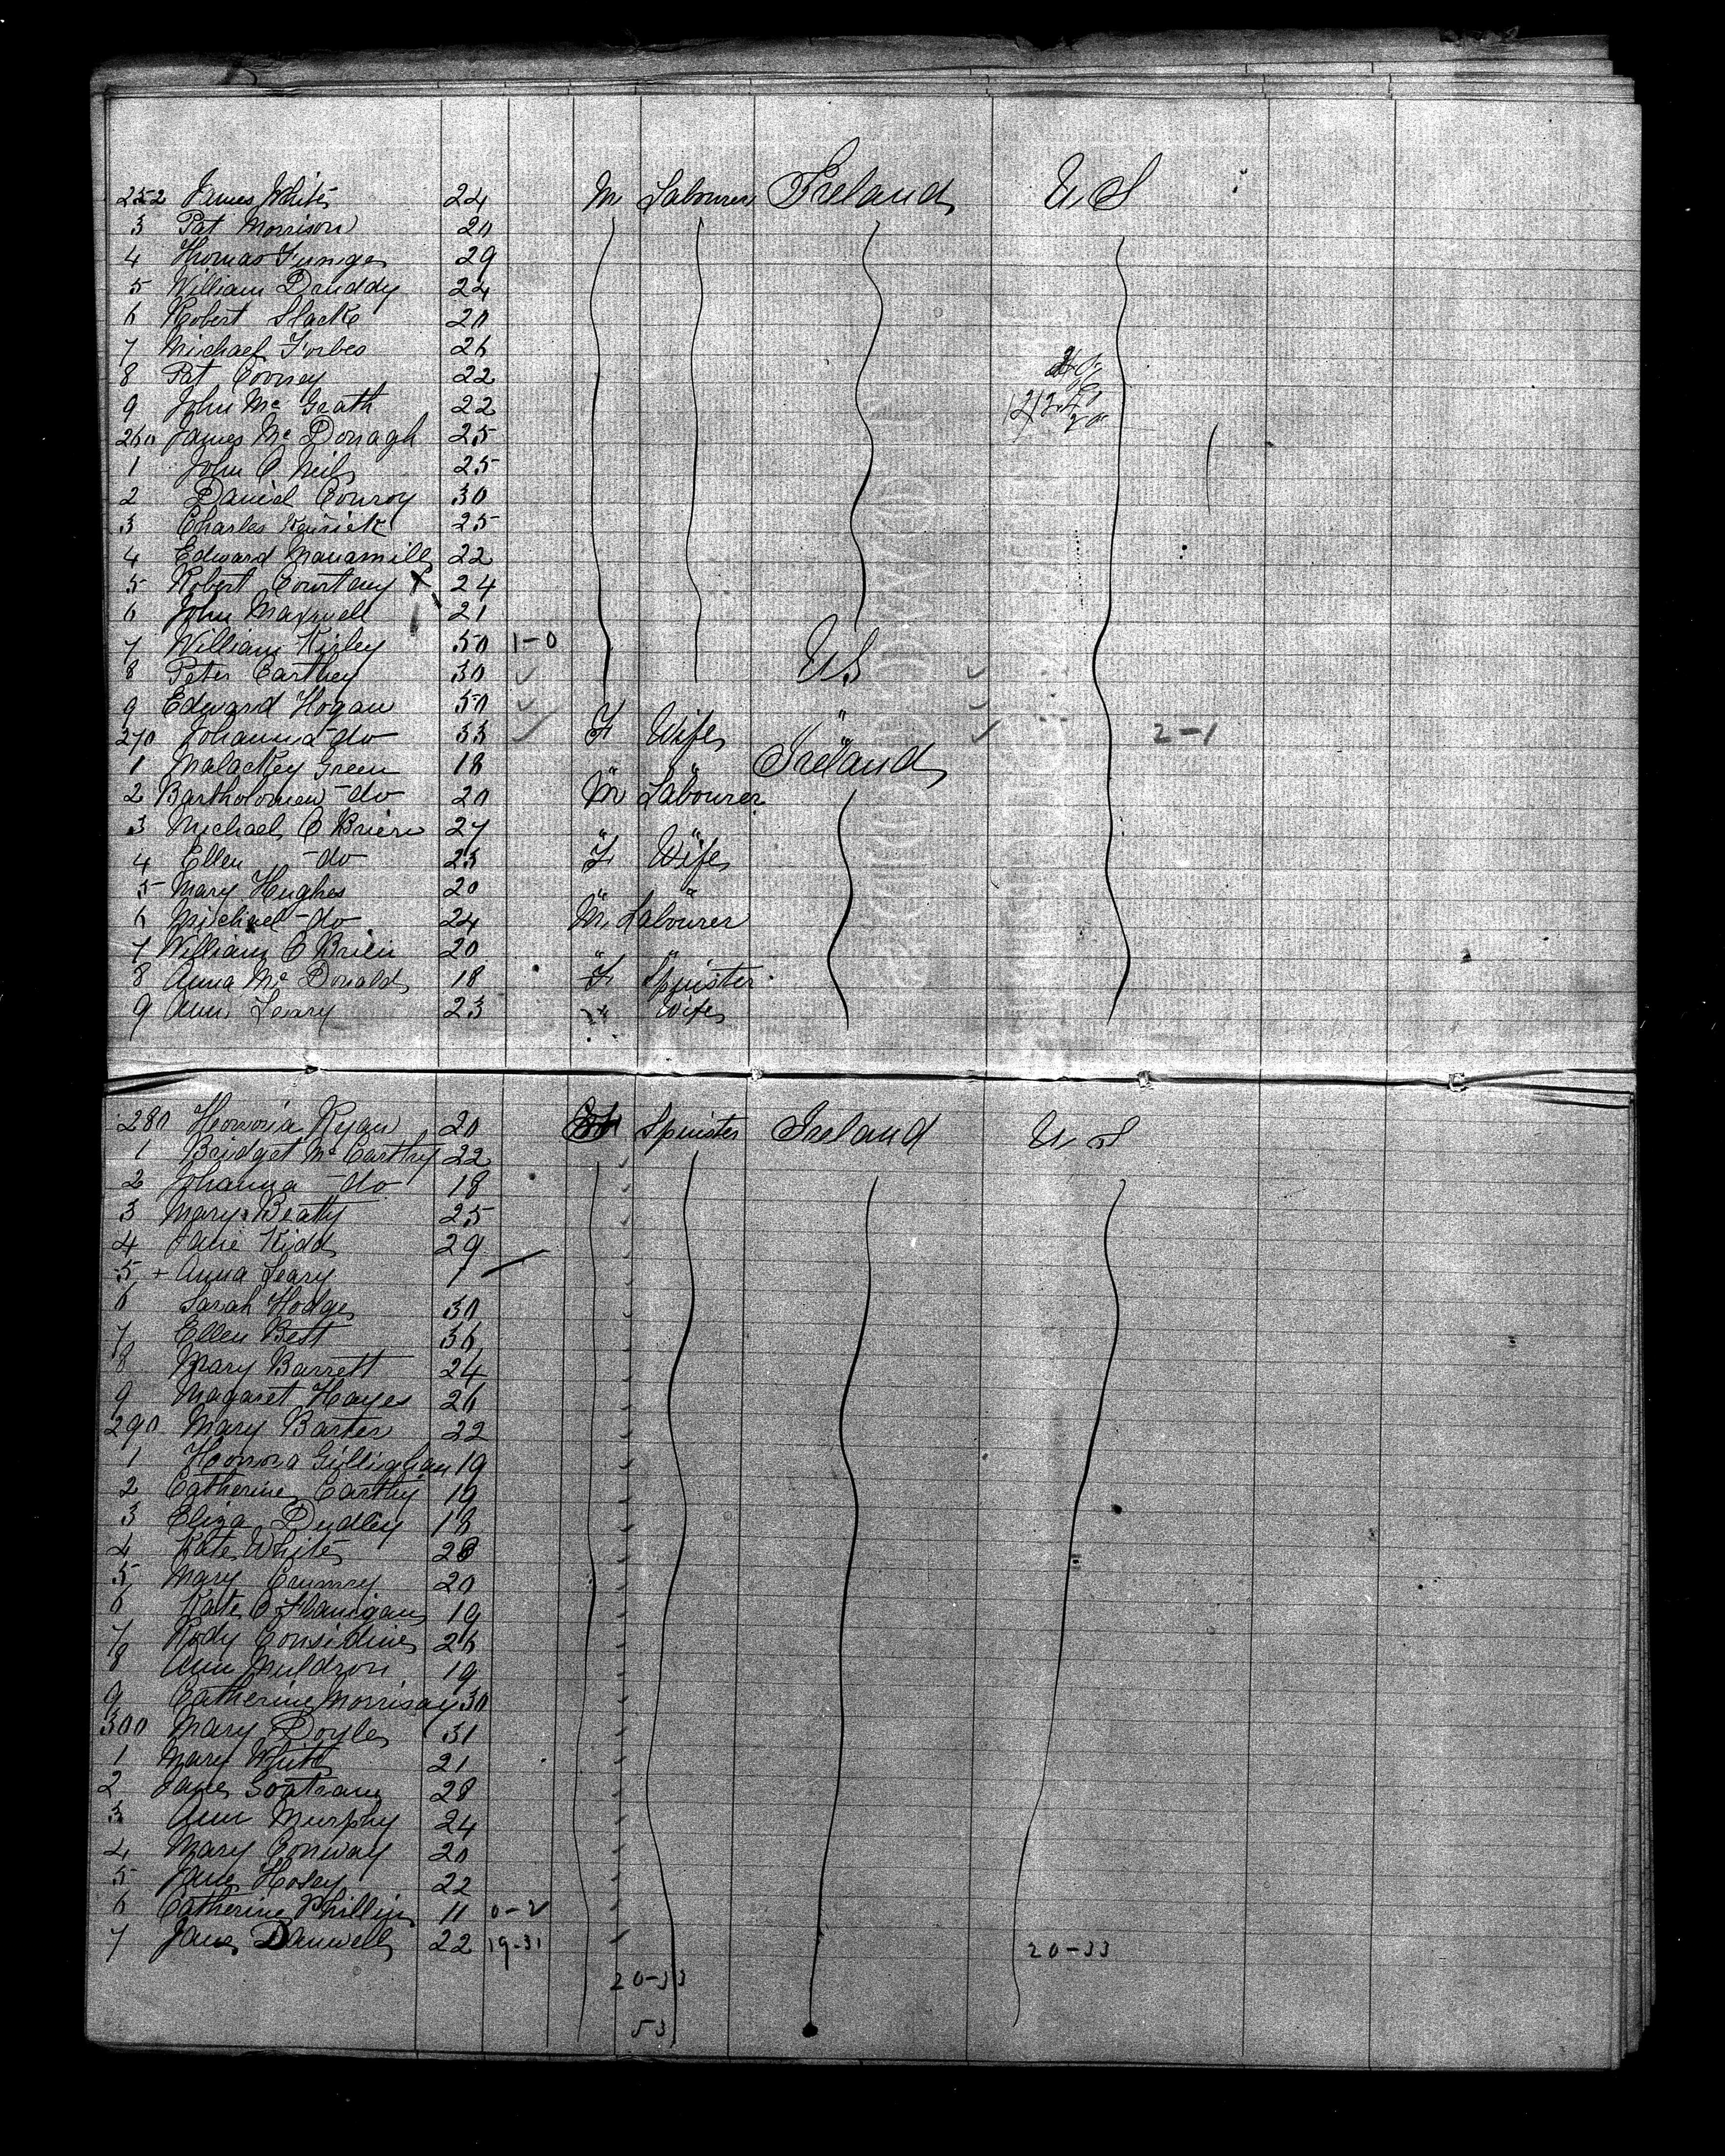 252 James White 24 M Labourer Ireland U S
3 Pat Morrison 20
4 Thomas 29
5 William Druddy 24
6 Robert Slack 20
7 Michael Forbes 26
8 Pat Cooney 22
9 John Mc Grath 22
260 James Mc Donagh 25
1 John O Neil 25
2 Daniel Conroy 30
3 Charles 25
4 Edward 22
5 Robert Courtney X 24
6 John Maxwell 21
7 William Kirley 50 1-0 US
8 Peter Carthey 30 ✓ ✓
9 Edward Hogan 50 ✓ " ✓
270 Johanna -do 33 ✓ F Wife " ✓ 2-1
1 Malackey Green 18 " " Ireland
2 Bartholomew -do 20 M Labourer
3 Michael O Brien 27 " "
4 Ellen -do 23 F Wife
5 Mary Hughes 20 " "
6 Michael -do 24 M Labourer
7 William O Brien 20 " "
8 Anna Mc Donald 18 F Spinster
9 Ann Leary 23 " Wife
280 Honoria Ryan 20 Spinster Ireland U S
1 Bridget Mc Carthy 22
2 Johanna -do 18
3 Mary Beatty 25
4 Jane Kidd 29
5 + Anna Leary 1
6 Sarah Hodge 30
7 Ellen Best 36
8 Mary Barrett 24
9 Magaret Hayes 26
290 Mary Barter 22
1 Honora Gillighan 19
2 Catherine Carthy 19
3 Eliza Dudley 18
4 Kate White 28
5 Mary 20
6 Kate O Flanigan 19
7 Rody Considine 26
8 Ann Muldroon 19
9 Catherine Morrisay 30
300 Mary Doyle 31
1 Mary White 21
2 Jane 28
3 Ann Murphy 24
4 Mary Conway 20
5 Jane Hosey 22
6 Catherine Phillips 11 0-2
7 Jane Danwell 22 19-31 20-33
20-33
53